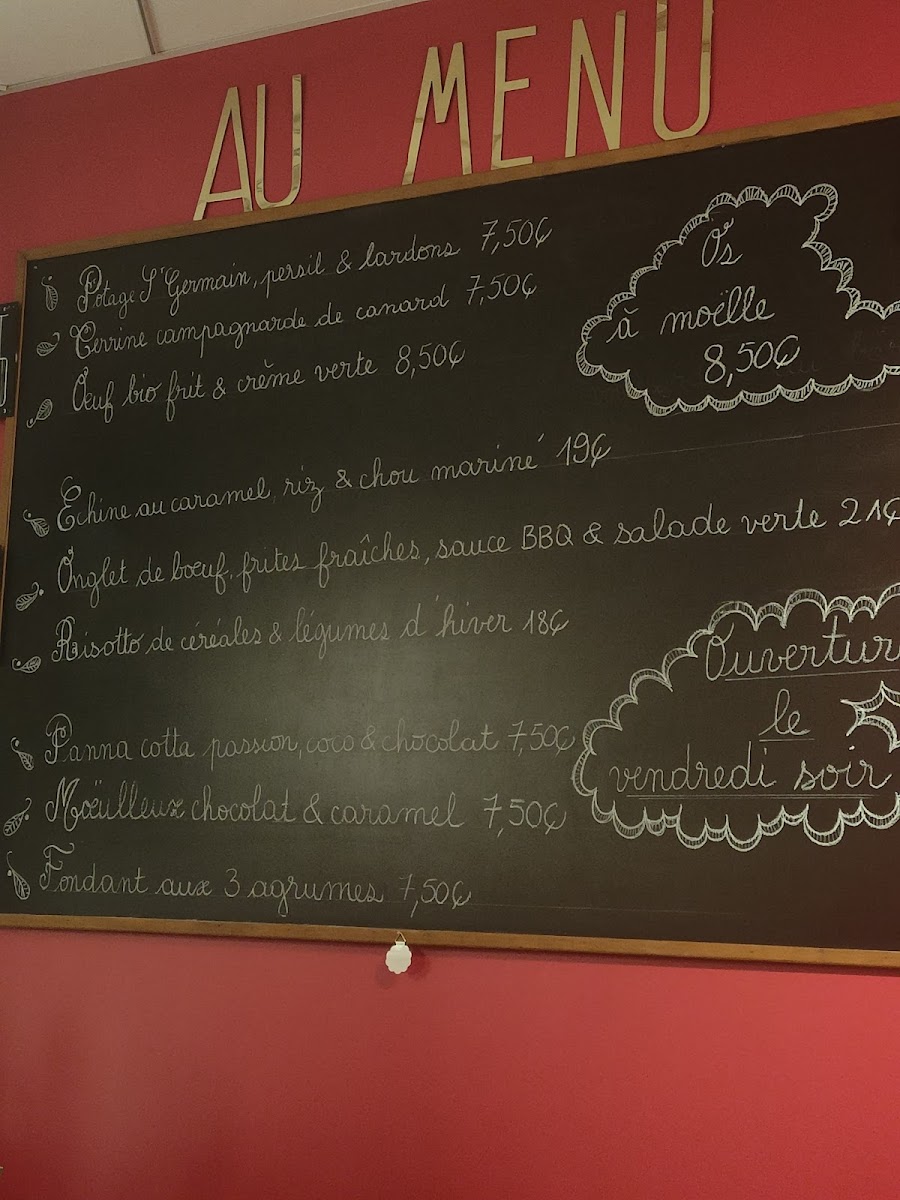 AU MENU
Potage St Germain, persil & lardons 7,50€
Terrine campagnarde de canard 7,50€
Œuf bio frit & crème verte 8,50€
Os
à moëlle
8,50€
Echine au caramel, riz & chou mariné 19€
Onglet de bœuf, frites fraîches, sauce BBQ & salade verte 21€
Risotto de céréales & légumes d'hiver 18€
Ouvertur
le
vendredi soir
Panna cotta passion, coco & chocolat 7,50€
Moëulleux chocolat & caramel 7,50€
Fondant aux 3 agrumes 7,50€